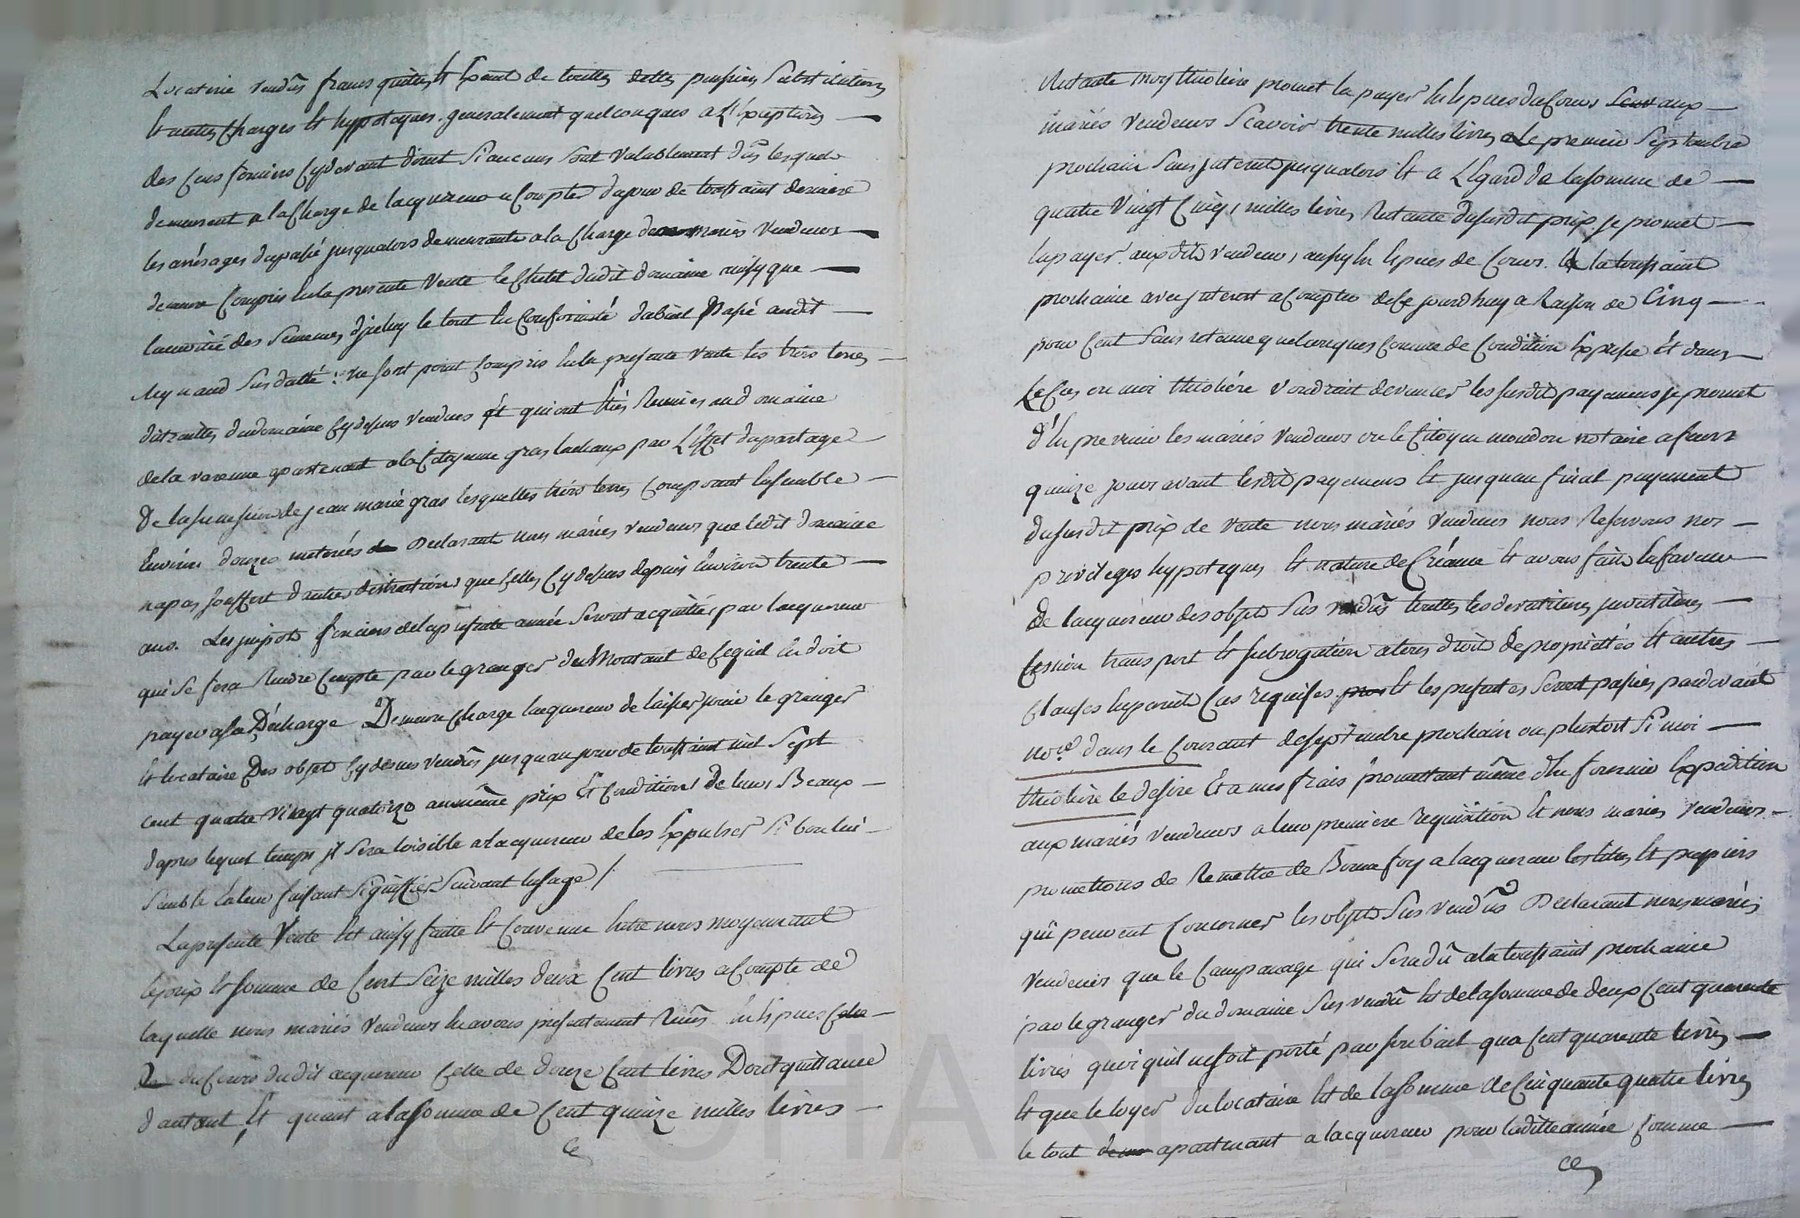 Locaterie vendûs francs quittes et Exant de touttes dettes pansions Substitutions
et autres Charges et hyppoteques generalement quelconques a L'Exeption —
des Cens fonciers Cydevant dirret Si aucuns sont valablement dus lesquels
demeurent a la Charge de lacquereur a Compter du jour de toussaint derniere
les arrérages du passé jusqualors demeurants a la Charge de mariés Vendeurs —
demeure Compris En la presente Vente le Cheptel dudit domaine ainsy que —
la moitié des Semences dicelluy le tout En Conformité du bail Passé audit —
Meynaud Sus datté : ne sont point Compris En la presente vente les trois terres —
distraittes du domaine Cydessus vendues et qui ont Etés Reunies au domaine
de la varenne apartenant a la Citoyenne gras Lachaux par L'Effet du partage —
De la succession de jean marie gras lesquelles trois terres Composent Ensemble —
Environ douze meterées Declarant nous mariés vendeurs que ledit domaine
n'a pas souffert d'autres distractions que Celles Cydessus depuis Environ trente —
ans. Les impots fonciers de la presente année Seront acquittés par lacquereur
qui se fera Rendre Compte par le granger du Montant de Cequil En doit
payer a sa Décharge Demeure Charge lacquereur de laisser jouir le granger
et locataire Des objets Cydessus vendûs jusquau jour de toussaint mil Sept
cent quatre Vingt quatorze au même prix Et Conditions de leurs Beaux —
dapres lequel temps il Sera loisible a lacquereur de les Expulser Si bon lui —
Semble En leur faisant Signiffier Suivant lusage /.
La presente Vente Est ainsy faitte et Convenue Entre nous moyennant
le prix Et somme de Cent Seize milles deux Cent livres a Compte de
laquelle nous mariés Vendeurs En avons presentement Reçus En Espèces —
du Cours dudit acquereur Celle de douze Cent livres Dont quittance
dautant, Et quant a la somme de Cent quinze milles livres —
Ce
Restante moy thiolière promet la payer En Espèces du Cours aux —
mariés vendeurs Scavoir trente milles livres Le premier Septembre
prochain Sans interest jusqualors Et a LEgard de la somme de —
quatre Vingt Cinq milles livres Restante du susdit prix je promet —
la payer auxdits vendeurs, aussy En Espèces de Cours a la toussaint
prochaine avec interest a Compter de Ce jourdhuy a Raison de Cinq —
pour Cent Sans retenue quelconques Comme de Condition Expresse Et dans —
Le Cas ou moi thiolière voudrait devancer les susdits payemens je promet
d'En prevenir les mariés vendeurs ou le Citoyen mondon notaire a feurs
quinze jours avant lesdits payemens Et jusquau final payement
du susdit prix de vente nous mariés vendeurs nous Reservons nos —
privileges hypoteques Et nature de Créance Et avons faits En faveur —
De lacquereur des objets Sus vendûs touttes les devetitures investitures —
Cession transport Et subrogation a tous droits de propriettés Et autres —
Clauses En pareil Cas requises Et les presentes Seront passées pardevant
nore. dans le Courant de septembre prochain ou plustost Si moi —
thiolière le desire Et a mes frais promettant même d'En fournir Expedition
aux mariés vendeurs a leur premiere requisition Et nous mariés vendeurs —
promettons de Remettre de Bonne foy a lacquereur les titres Et papiers
qui peuvent Concerner les objets Sus vendûs Declarant nous mariés
vendeurs que le Campanage qui Sera dû a la toussaint prochaine
par le granger du domaine Sus vendu Est de la somme de deux Cent quarente
livres quoiquil ne soit porté par son bail qua Cent quarente livres —
Et que le loyer du locataire Est de la somme de Cinquante quatre livres
le tout apartenant a lacquereur pour laditte année Comme —
Ce